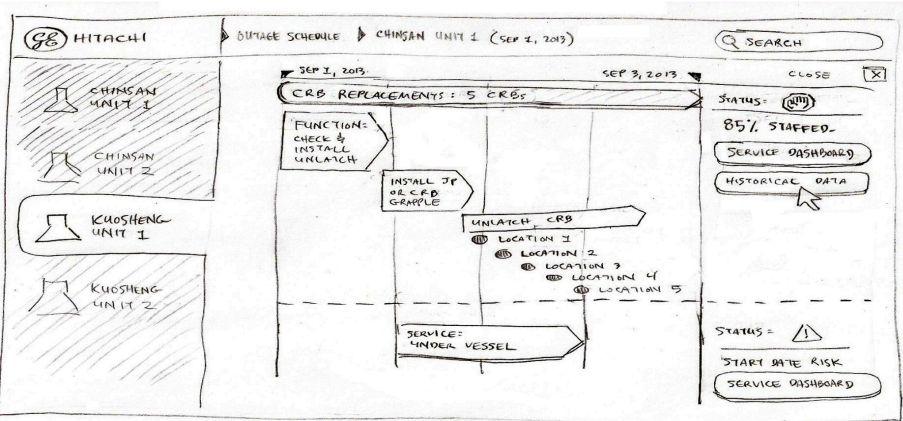 GE HITACHI
OUTAGE SCHEDULE
CHINSAN UNIT 1 (SEP 1, 2013)
SEARCH
CHINSAN
UNIT 1
CHINSAN
UNIT 2
KUOSHENG
UNIT 1
KUOSHENG
UNIT 2
SEP 1, 2013.
SEP 3, 2013
CRB REPLACEMENTS: 5 CRBs
FUNCTION:
CHECK &
INSTALL
UNLATCH
INSTALL JP
OR CRB
GRAPPLE
UNLATCH CRB
LOCATION 1
LOCATION 2
LOCATION 3
LOCATION 4
LOCATION 5
SERVICE:
UNDER VESSEL
CLOSE X
STATUS:
85% STAFFED-
SERVICE DASHBOARD
HISTORICAL DATA
STATUS: !
START DATE RISK
SERVICE DASHBOARD